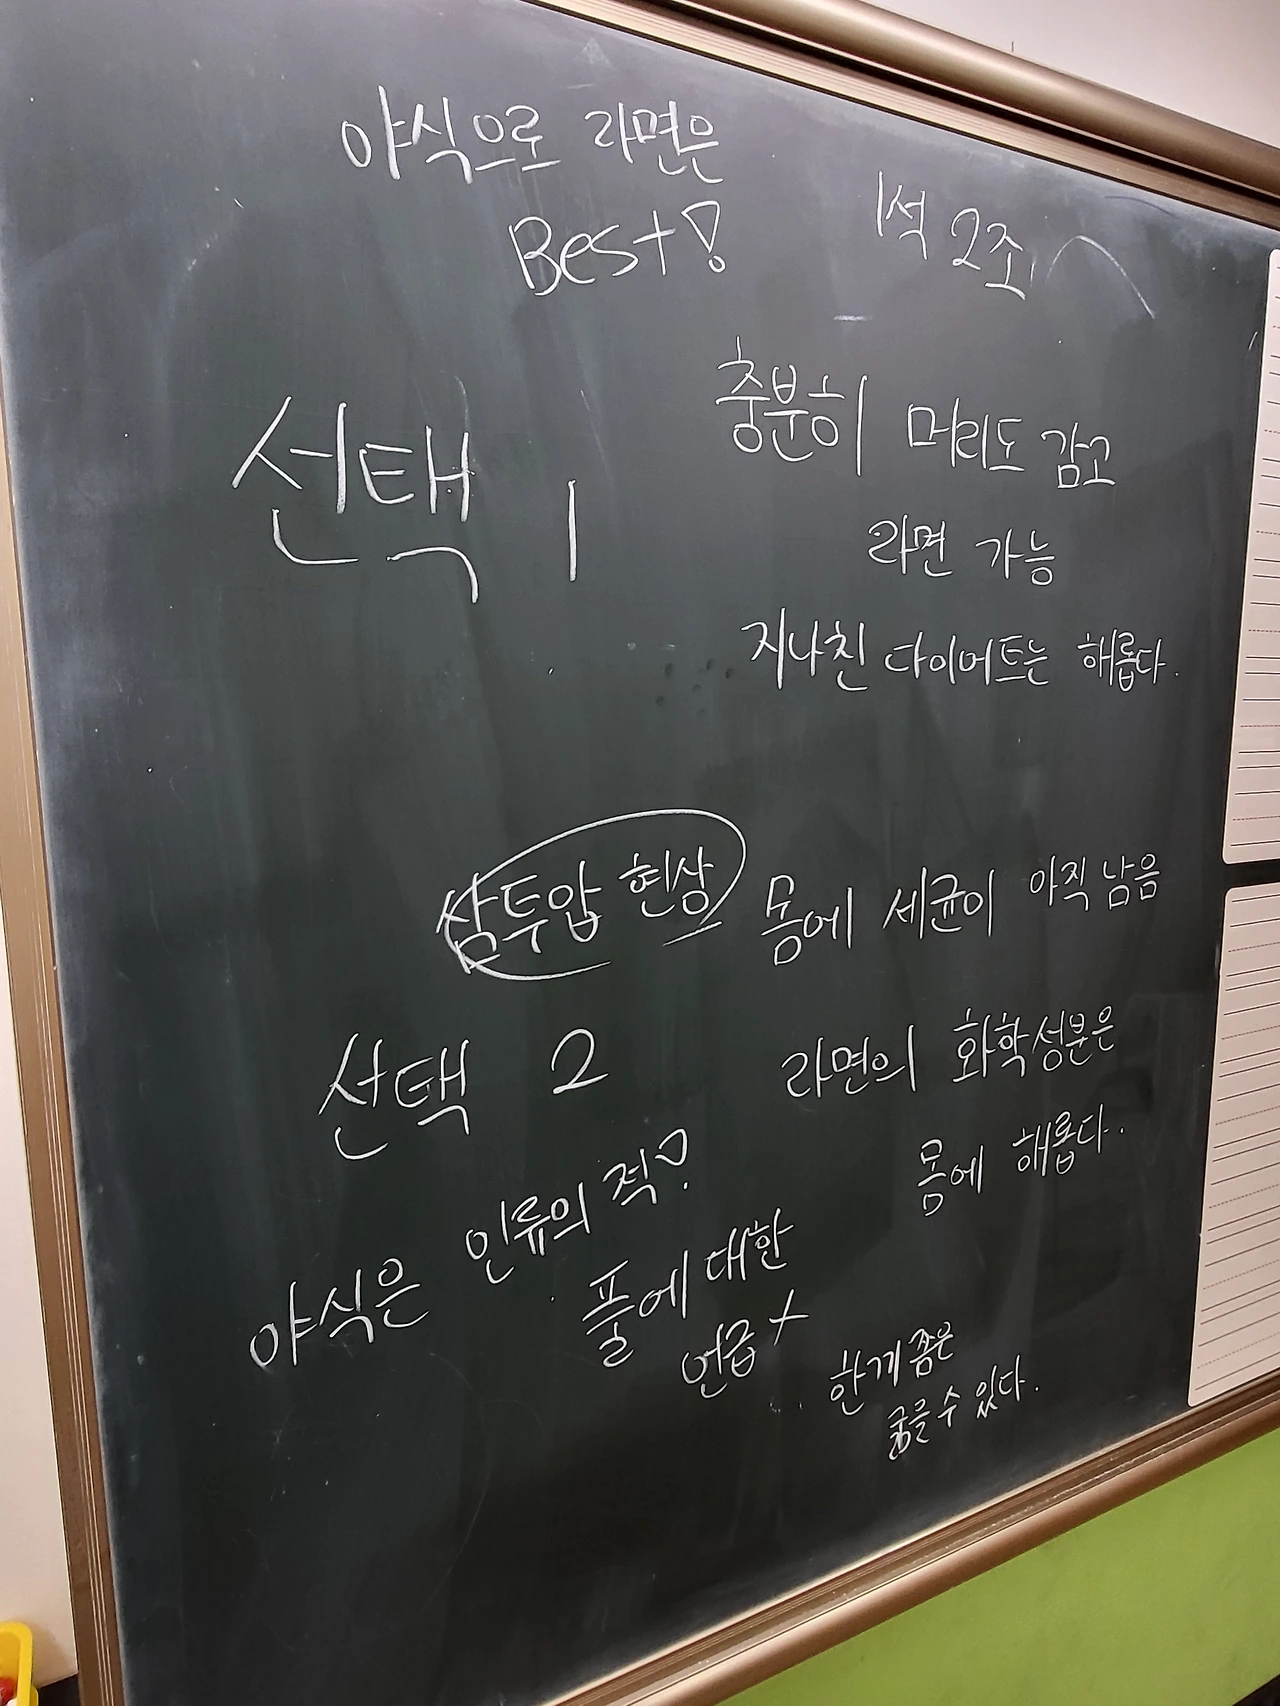 야식으로 라면은
Best!
1석 2조
선택 1
충분히 머리도 감고
라면 가능
지나친 다이어트는 해롭다.
삼투압 현상
몸에 세균이 아직 남음
선택 2
라면의 화학성분은
몸에 해롭다.
야식은 인류의 적!
풀에 대한
언급 X
한께 쯤은
굶을 수 있다.